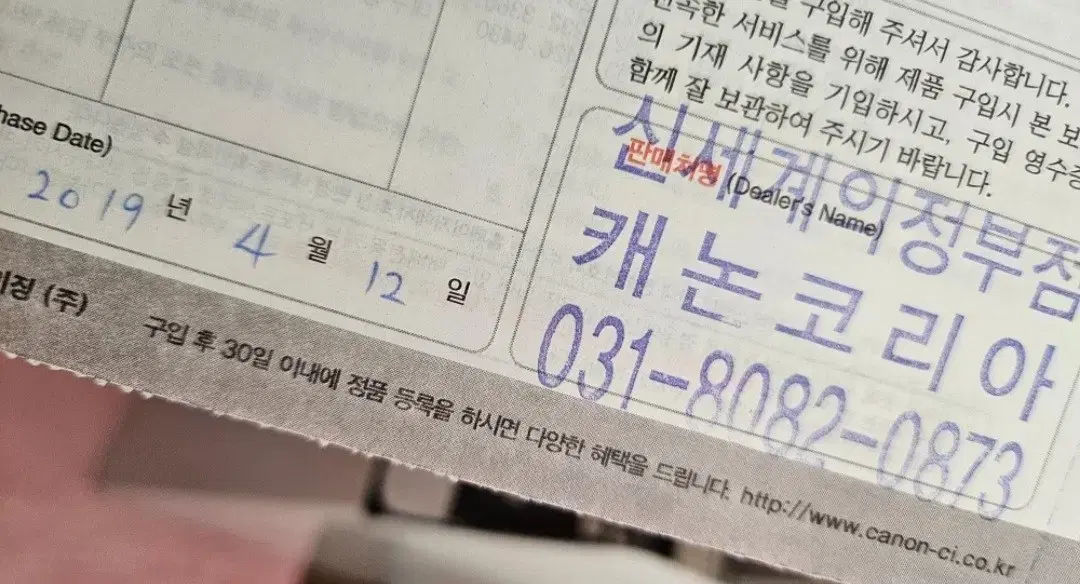 구입해 주셔서 감사합니다.
신속한 서비스를 위해 제품 구입시 본 보
의 기재 사항을 기입하시고, 구입 영수증
함께 잘 보관하여 주시기 바랍니다.
hase Date)
2019 년 4 월 12 일
판매처명 (Dealer's Name)
신세계 의정부점
캐논코리아
031-8082-0873
이징 (주)
구입 후 30일 이내에 정품 등록을 하시면 다양한 혜택을 드립니다. http://www.canon-ci.co.kr